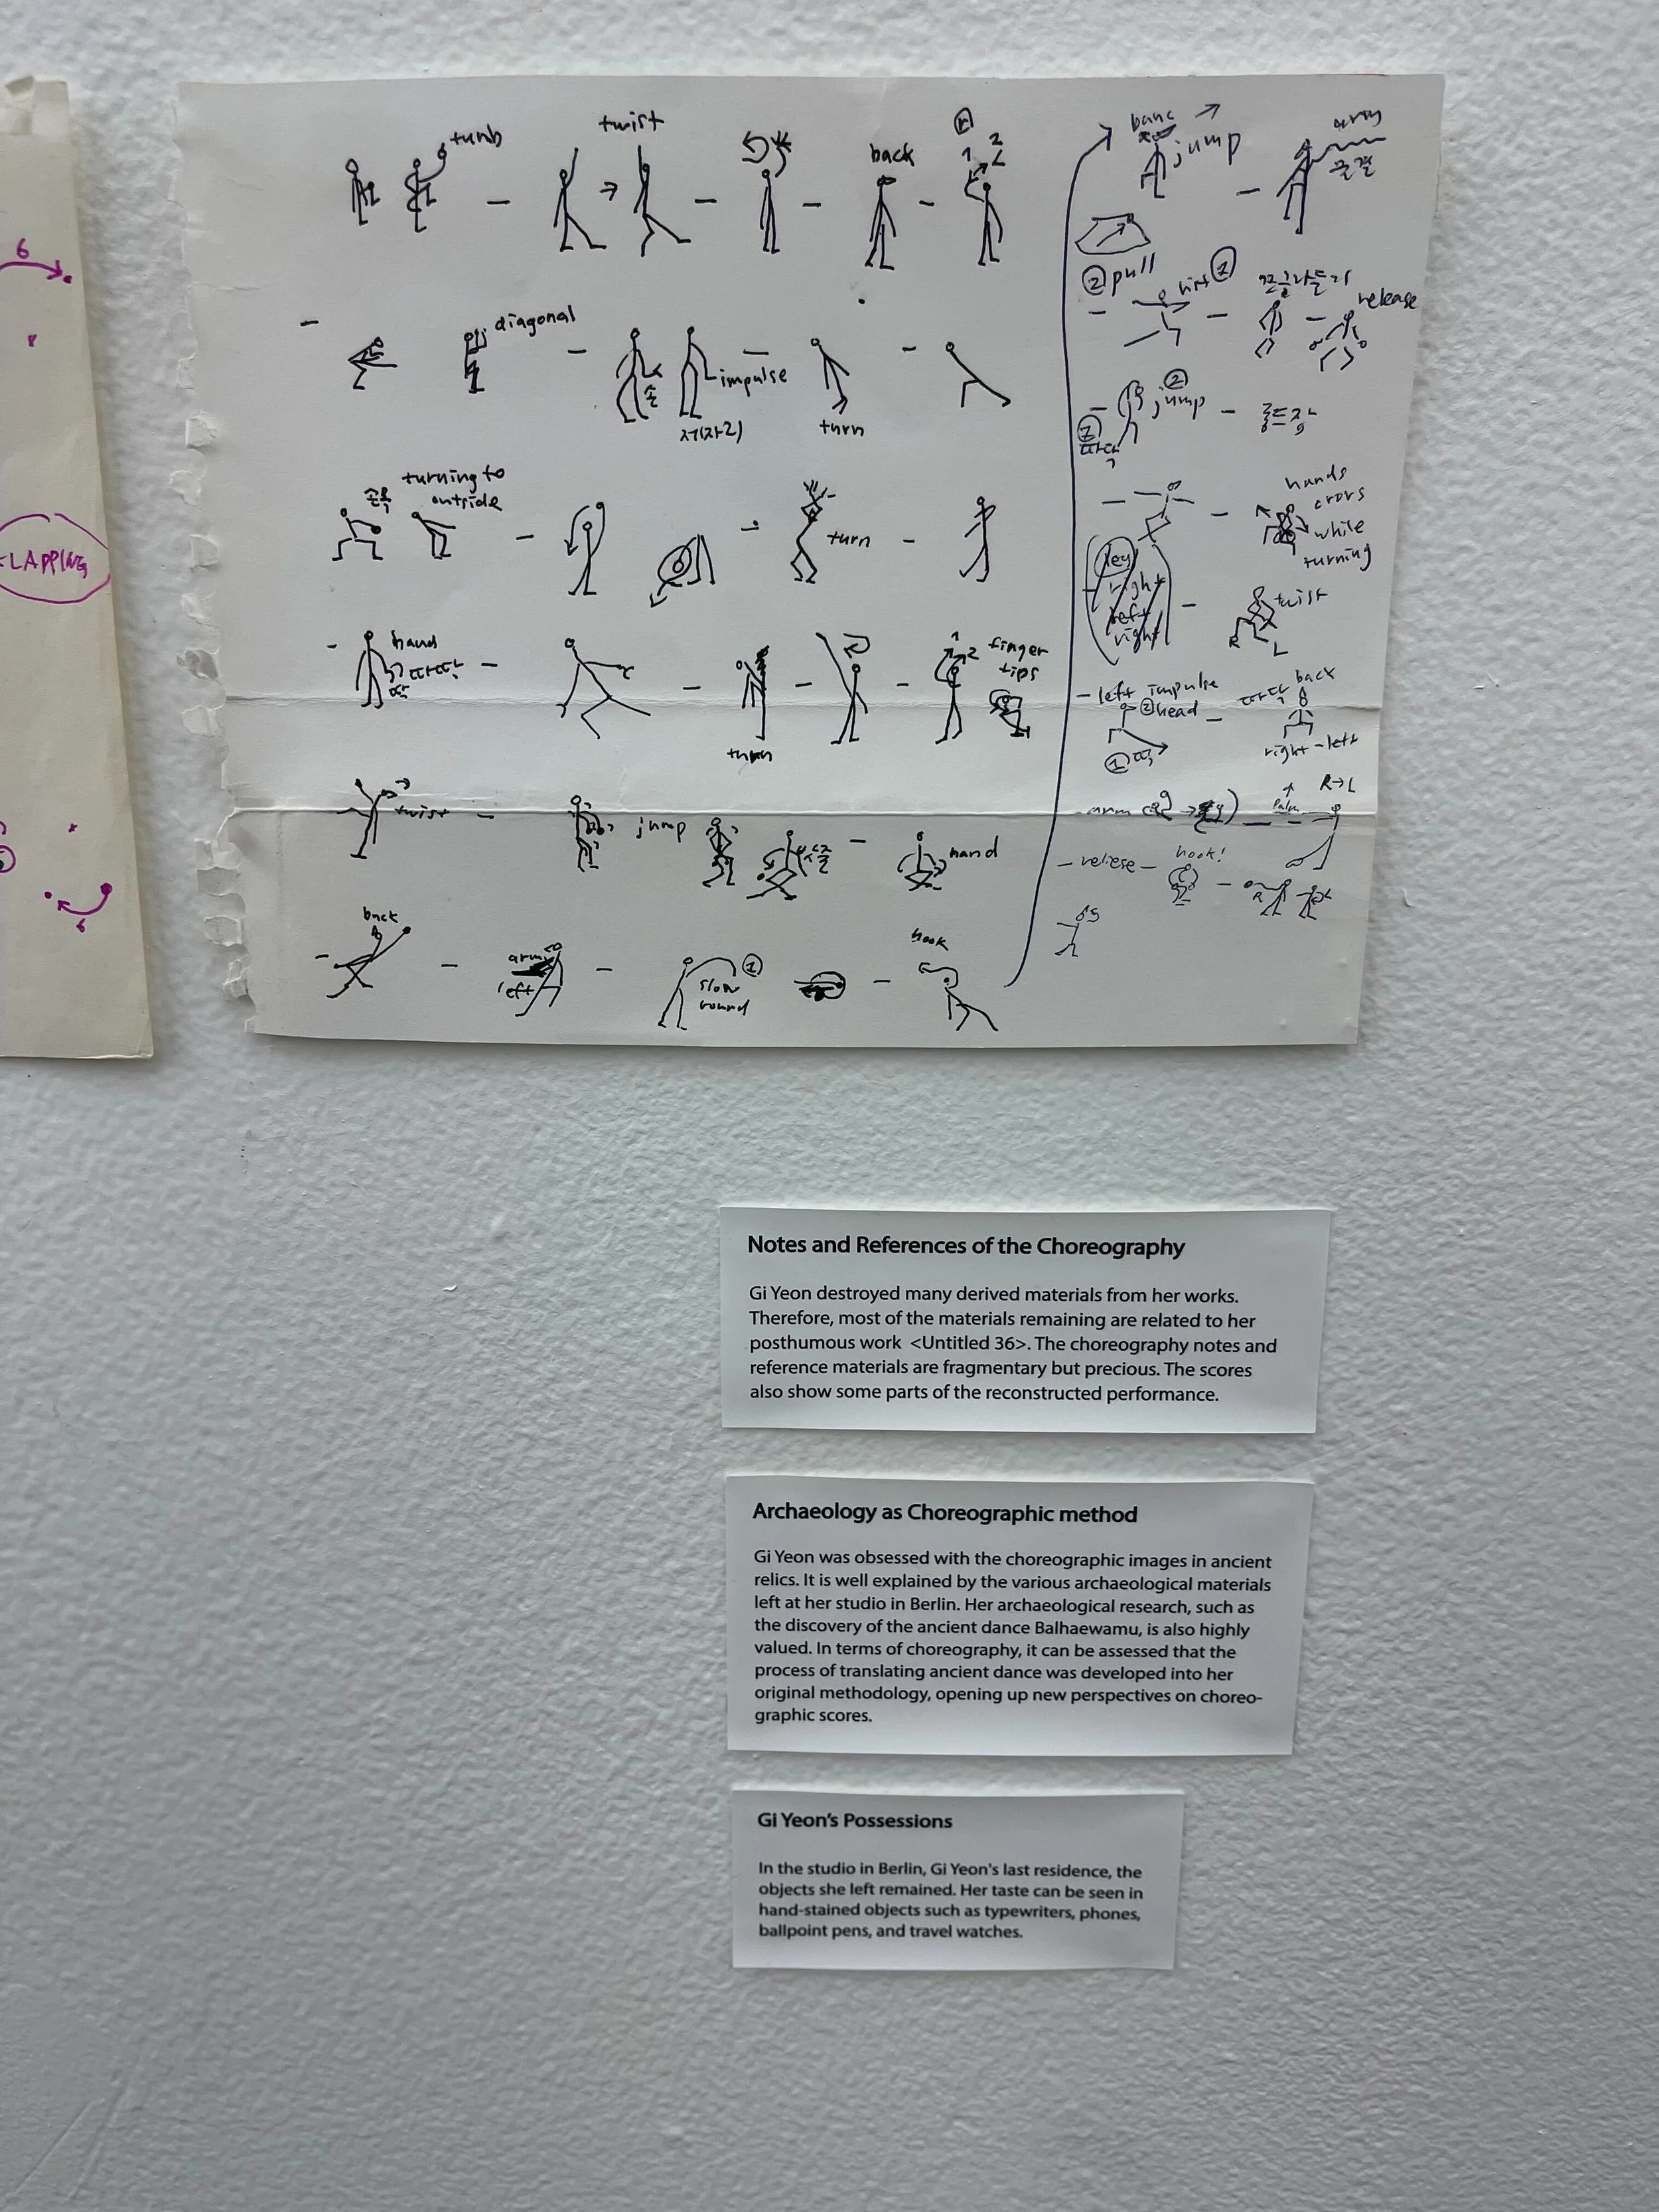 6
CLAPPING
6
turnb
twist
back
1 2
diagonal
손
impulse
제(자리)
turn
손목
turning to
outside
turn
hand
따다닥
turn
1 2
finger
tips
twist
jump
hand
back
arm
left
1
slow
round
hook
jump
물결
2 pull
release
2
jump
hands
cross
while
turning
leg
right
left
right
twist
R L
left impulse
2 head
1
back
right - left
arm
palm
R→L
reliese
hook!
Notes and References of the Choreography
Gi Yeon destroyed many derived materials from her works.
Therefore, most of the materials remaining are related to her
posthumous work <Untitled 36>. The choreography notes and
reference materials are fragmentary but precious. The scores
also show some parts of the reconstructed performance.
Archaeology as Choreographic method
Gi Yeon was obsessed with the choreographic images in ancient
relics. It is well explained by the various archaeological materials
left at her studio in Berlin. Her archaeological research, such as
the discovery of the ancient dance Balhaewamu, is also highly
valued. In terms of choreography, it can be assessed that the
process of translating ancient dance was developed into her
original methodology, opening up new perspectives on choreo-
graphic scores.
Gi Yeon's Possessions
In the studio in Berlin, Gi Yeon's last residence, the
objects she left remained. Her taste can be seen in
hand-stained objects such as typewriters, phones,
ballpoint pens, and travel watches.